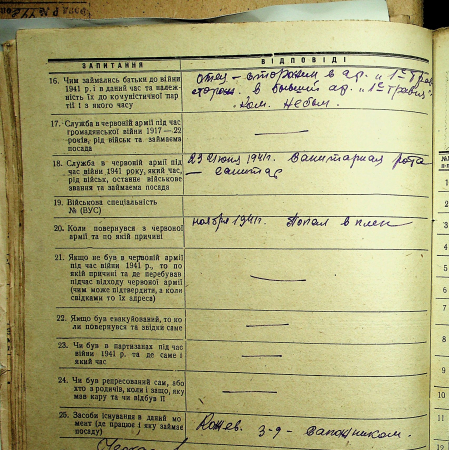 ЗАПИТАННЯ
ВІДПОВІДІ
16. Чим займались батьки до війни
1941 р. і в даний час та належ-
ність їх до комуністичної пар
тії і з якого часу
отец – сторожем в ар. „1-е Трав
сторож. в бывший ар. „1е травня".
17. Служба в червоній армії під час
громадянської війни 1917—22
років, рід військ та займаема
посада
18. Служба в червоній армії під
час війни 1941 року, який час,
рід військ, останнє військове
звання та займаема посада
23 июня 1941г. Санитарная рота
— санитар
19. Військова спеціальність
№ (ВУС)
20. Коли повернувся з червоної
армії та по якій причині
ноября 1941г. Попал в плен
21. Якщо не був в червоній армії
під час війни 1941 р., то по
якій причині та де перебував
під час відходу червоної армії
(чим може підтвердити, а коли
свідками то їх адреса)
22. Якщо був евакуйований, то ко
ли повернувся та звідки саме
23. Чи був в партизанах під час
війни 1941 р. та де саме і
який час
24. Чи був репресований сам, або
хто з родичів, коли і защо, яку
мав кару та чи відбув її
25. Засоби існування в даний мо
мент (де працює і яку займає
посаду)
Кожев. З-д – сапожником.